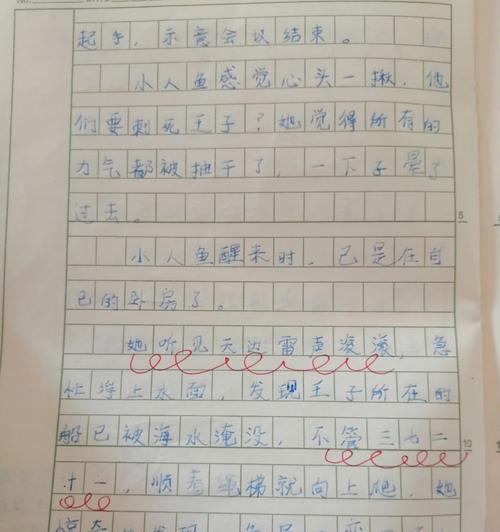 NO.
起手，示意会议结束。
小人鱼感觉心头一揪，他
们要刺死王子？她觉得所有的
力气都被抽干了，一下子晕了
过去。
5
小人鱼醒来时，已是在自
己的卧房了。
她听见天边雷声滚滚，急
忙浮上水面，发现王子所在的
船已被海水淹没，不管三七二
10
十一，顺着绳梯就向上爬，她